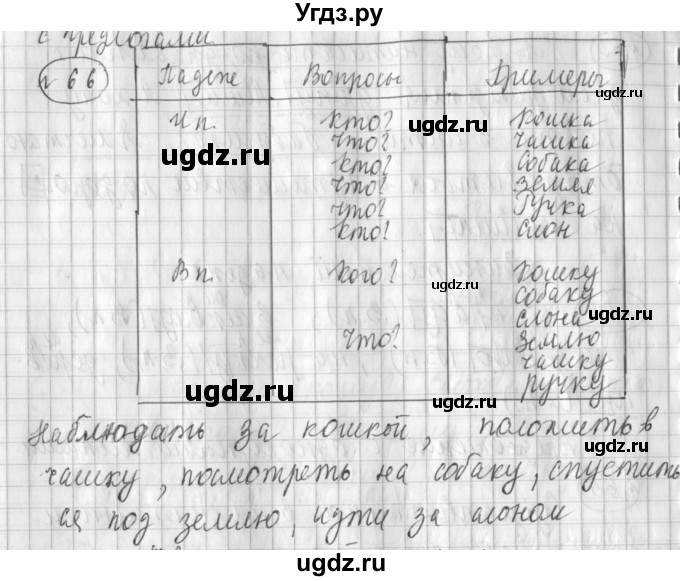 Угдз.ру
с предлогами
№ 66
Падеж Вопросы Примеры
И п. кто? кошка
что? чашка
кто? собака
что? земля
что? ручка
кто? слон
В п. кого? кошку
собаку
слона
что? землю
чашку
ручку
Наблюдать за кошкой, положить в
чашку, посмотреть на собаку, спустить
ся под землю, идти за слоном
ugdz.ru
ugdz.ru
ugdz.ru
ugdz.ru
ugdz.ru
ugdz.ru
ugdz.ru
ugdz.ru
ugdz.ru
ugdz.ru
ugdz.ru